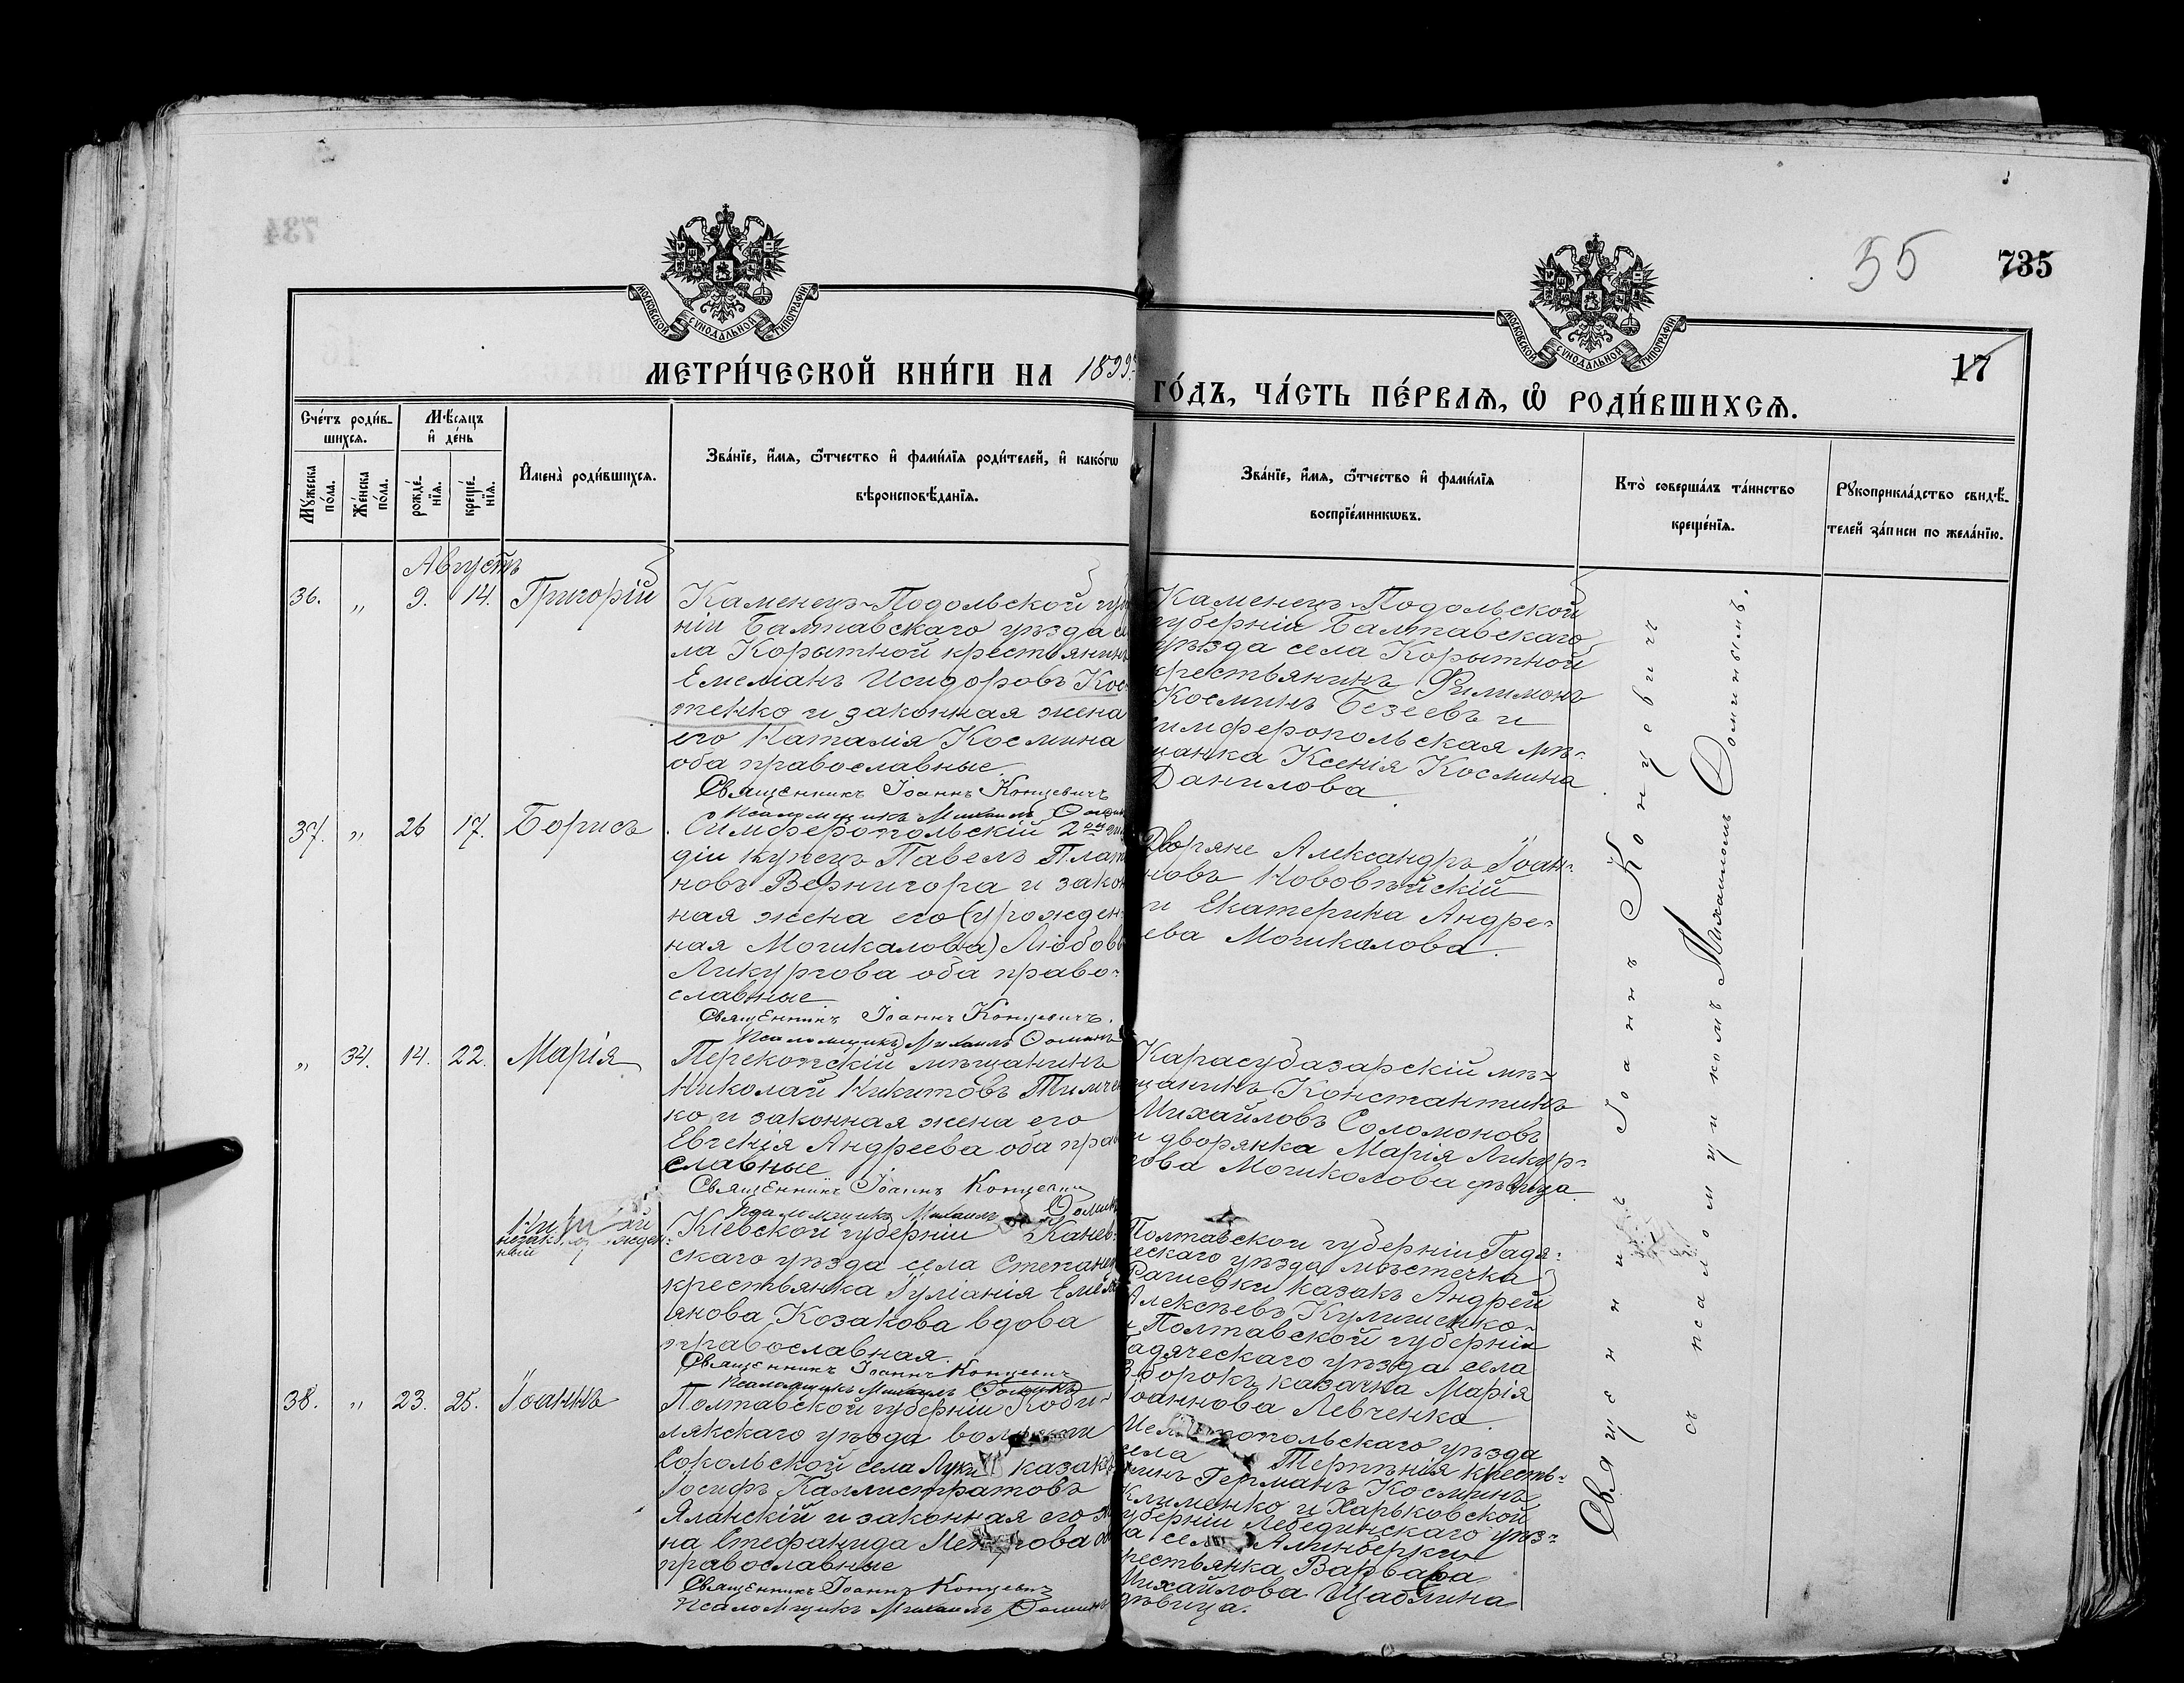 55
735
17
МОСКОВСКОЙ СѴНОДАЛЬНОЙ ТИПОГРАФІИ
МОСКОВСКОЙ СѴНОДАЛЬНОЙ ТИПОГРАФІИ
МЕТРИ́ЧЕСКОЙ КНИ́ГИ НА 1899
ГО́ДЪ, ЧА́СТЬ ПЕ́РВАѦ, Ѡ҆ РОДИ́ВШИХСѦ.
Сче́тъ роди́в-
шихсѧ.
Мꙋ́жеска по́ла.
Же́нска по́ла.
Мѣ́сѧцъ
и҆ де́нь
рожде́-
нїѧ.
креще́-
нїѧ.
И҆мена̀ роди́вшихсѧ.
Зва́нїе, и҆́мѧ, ѻ҆́тчество и҆ фами́лїѧ роди́телей, и҆ како́гѡ
вѣроисповѣ́данїѧ.
Зва́нїе, и҆́мѧ, ѻ҆́тчество и҆ фами́лїѧ
воспрїе́мникѡвъ.
Кто̀ соверша́лъ та́инство
креще́нїѧ.
Рꙋкоприкла́дство свидѣ́-
телей за́писи по жела́нїю.
Августъ
36. " 9. 14. Григорій
Каменецъ-Подольской губ
ніи Балтавскаго уѣзда се
ла Корытной крестьянинъ
Емеліанъ Исидоровъ Кос-
тенко и законная жена
его Наталія Космина
оба православные.
Священникъ Іоаннъ Концевичъ
Псаломщикъ Михаилъ Ѳомин
Каменецъ-Подольской
губерніи Балтавскаго
уѣзда села Корытной
крестьянинъ Филимонъ
Косминъ Безеевъ и
симферопольская мѣ-
щанка Ксенія Космина
Данилова.
37. " 26 17. Борисъ
Симферопольскій 2ой гил
діи купецъ Павелъ Плато
новъ Вернигора и закон
ная жена его (урожден-
ная Могикалова) Любовь
Ликургова оба право-
славные
Священникъ Іоаннъ Концевичъ.
Псаломщикъ Михаилъ Ѳоминъ
Дворяне Александръ Іоан-
новъ Нововѣйскій
и Екатерина Андре-
ева Могикалова.
" 34. 14. 22. Марія
Перекопскій мѣщанинъ
Николай Никитовъ Тимчен
ко и законная жена его
Евгенія Андреева оба прав
славные
Священникъ Іоаннъ Концевичъ
Псаломщикъ Михаилъ Ѳомин
Карасубазарскій мѣ-
щанинъ Константинъ
Михайловъ Соломоновъ
и дворянка Марія Ликур-
гова Могиколова дѣвица.
Кіевской губерніи Канев-
скаго уѣзда села Степанец
крестьянка Іуліанія Емел
янова Козакова вдова
православная.
Священникъ Іоаннъ Концевичъ
Псаломщикъ Михаилъ Ѳоминъ
Полтавской губерніи Гадя-
ческаго уѣзда мѣстечка
Рашевки казакъ Андрей
Алексѣевъ Кулишенко
и Полтавской губерніи
Гадяческаго уѣзда села
казачка Марія
Іоаннова Левченко
38. " 23. 25. Іоаннъ
Полтавской губерніи Коби-
лякскаго уѣзда волости
Сокольской села Луки казакъ
Іосифъ Каллистратовъ
Яланскій и законная его же
на Стефанида
православные
Священникъ Іоаннъ Концевичъ
Псаломщикъ Михаилъ Ѳоминъ
Мелитопольскаго уѣзда
села Терпѣнія кресть-
нинъ Германъ Косминъ
Клименко и Харьковской
губерніи Лебединскаго уѣз-
да села
крестьянка Варвара
Михайлова Щаблина
дѣвица.
Священникъ Іоаннъ Концевичъ
съ псаломщикомъ Михаиломъ Ѳоминымъ.